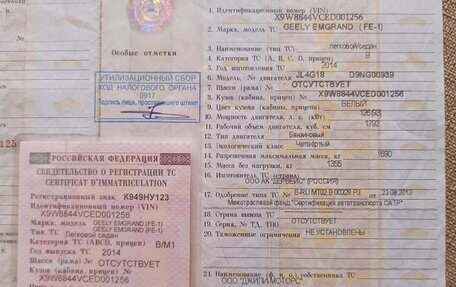 Особые отметки
УТИЛИЗАЦИОННЫЙ СБОР
КОД НАЛОГОВОГО ОРГАНА
0917
подпись лица, проставившего штамп
РОССИЙСКАЯ ФЕДЕРАЦИЯ
СВИДЕТЕЛЬСТВО О РЕГИСТРАЦИИ ТС
CERTIFICAT D'IMMATRICULATION
Регистрационный знак К949НУ123
Идентификационный номер (VIN)
X9W8844VCED001256
Марка, модель GEELY EMGRAND (FE-1)
GEELY EMGRAND (FE-1)
Тип ТС Легковой седан
Категория ТС (ABCD, прицеп) B/M1
Год выпуска ТС 2014
Шасси (рама) № ОТСУТСТВУЕТ
Кузов (кабина, прицеп) №
X9W8844VCED001256
1. Идентификационный номер (VIN)
X9W8844VCED001256
2. Марка, модель ТС GEELY EMGRAND (FE-1)
3. Наименование (тип ТС) легковой/седан
4. Категория ТС (А, В, С, D, прицеп) B
5. Год изготовления ТС 2014
6. Модель, № двигателя JL4G18 D9NG00939
7. Шасси (рама) № ОТСУТСТВУЕТ
8. Кузов (кабина, прицеп) № X9W8844VCED001256
9. Цвет кузова (кабины, прицепа) БЕЛЫЙ
10. Мощность двигателя, л. с. (кВт) 126(93)
11. Рабочий объем двигателя, куб. см 1792
12. Тип двигателя Бензиновый
13. Экологический класс Четвёртый
14. Разрешенная максимальная масса, кг 1690
15. Масса без нагрузки, кг 1355
16. Изготовитель ТС (страна)
ООО АК "ДЕРВЕЙС" РОССИЯ
17. Одобрение типа ТС № E-RU.MT02.B.00329.P3 от 23.08.2013
Межотраслевой фонд "Сертификация автотранспорта САТР"
18. Страна вывоза ТС ОТСУТСТВУЕТ
19. Серия, № ТД, ТПО ОТСУТСТВУЕТ
20. Таможенные ограничения НЕ УСТАНОВЛЕНЫ
21. Наименование (ф. и. о.) собственника ТС
ООО "ДЖИЛИ-МОТОРС"